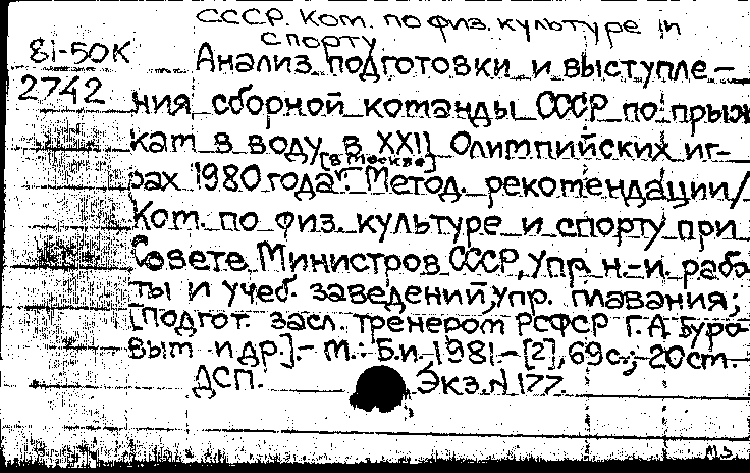 СССР. Ком. по физ. культуре и
спорту
81-50К
Анализ подготовки и выступле-
2742
ния сборной команды СССР по прыж
кам в воду в XXII Олимпийских иг-
[в Москве]
рах 1980 года: Метод. рекомендации/
Ком. по физ. культуре и спорту при
Совете Министров СССР, Упр. н.-и. рабо
ты и учеб. заведений, упр. плавания;
[Подгот. засл. тренером РСФСР Г.А. Буро
вым и др.].- М.: Б.и. 1981.- [2], 69 с.; 20 см.
ДСП. Экз. N 177.